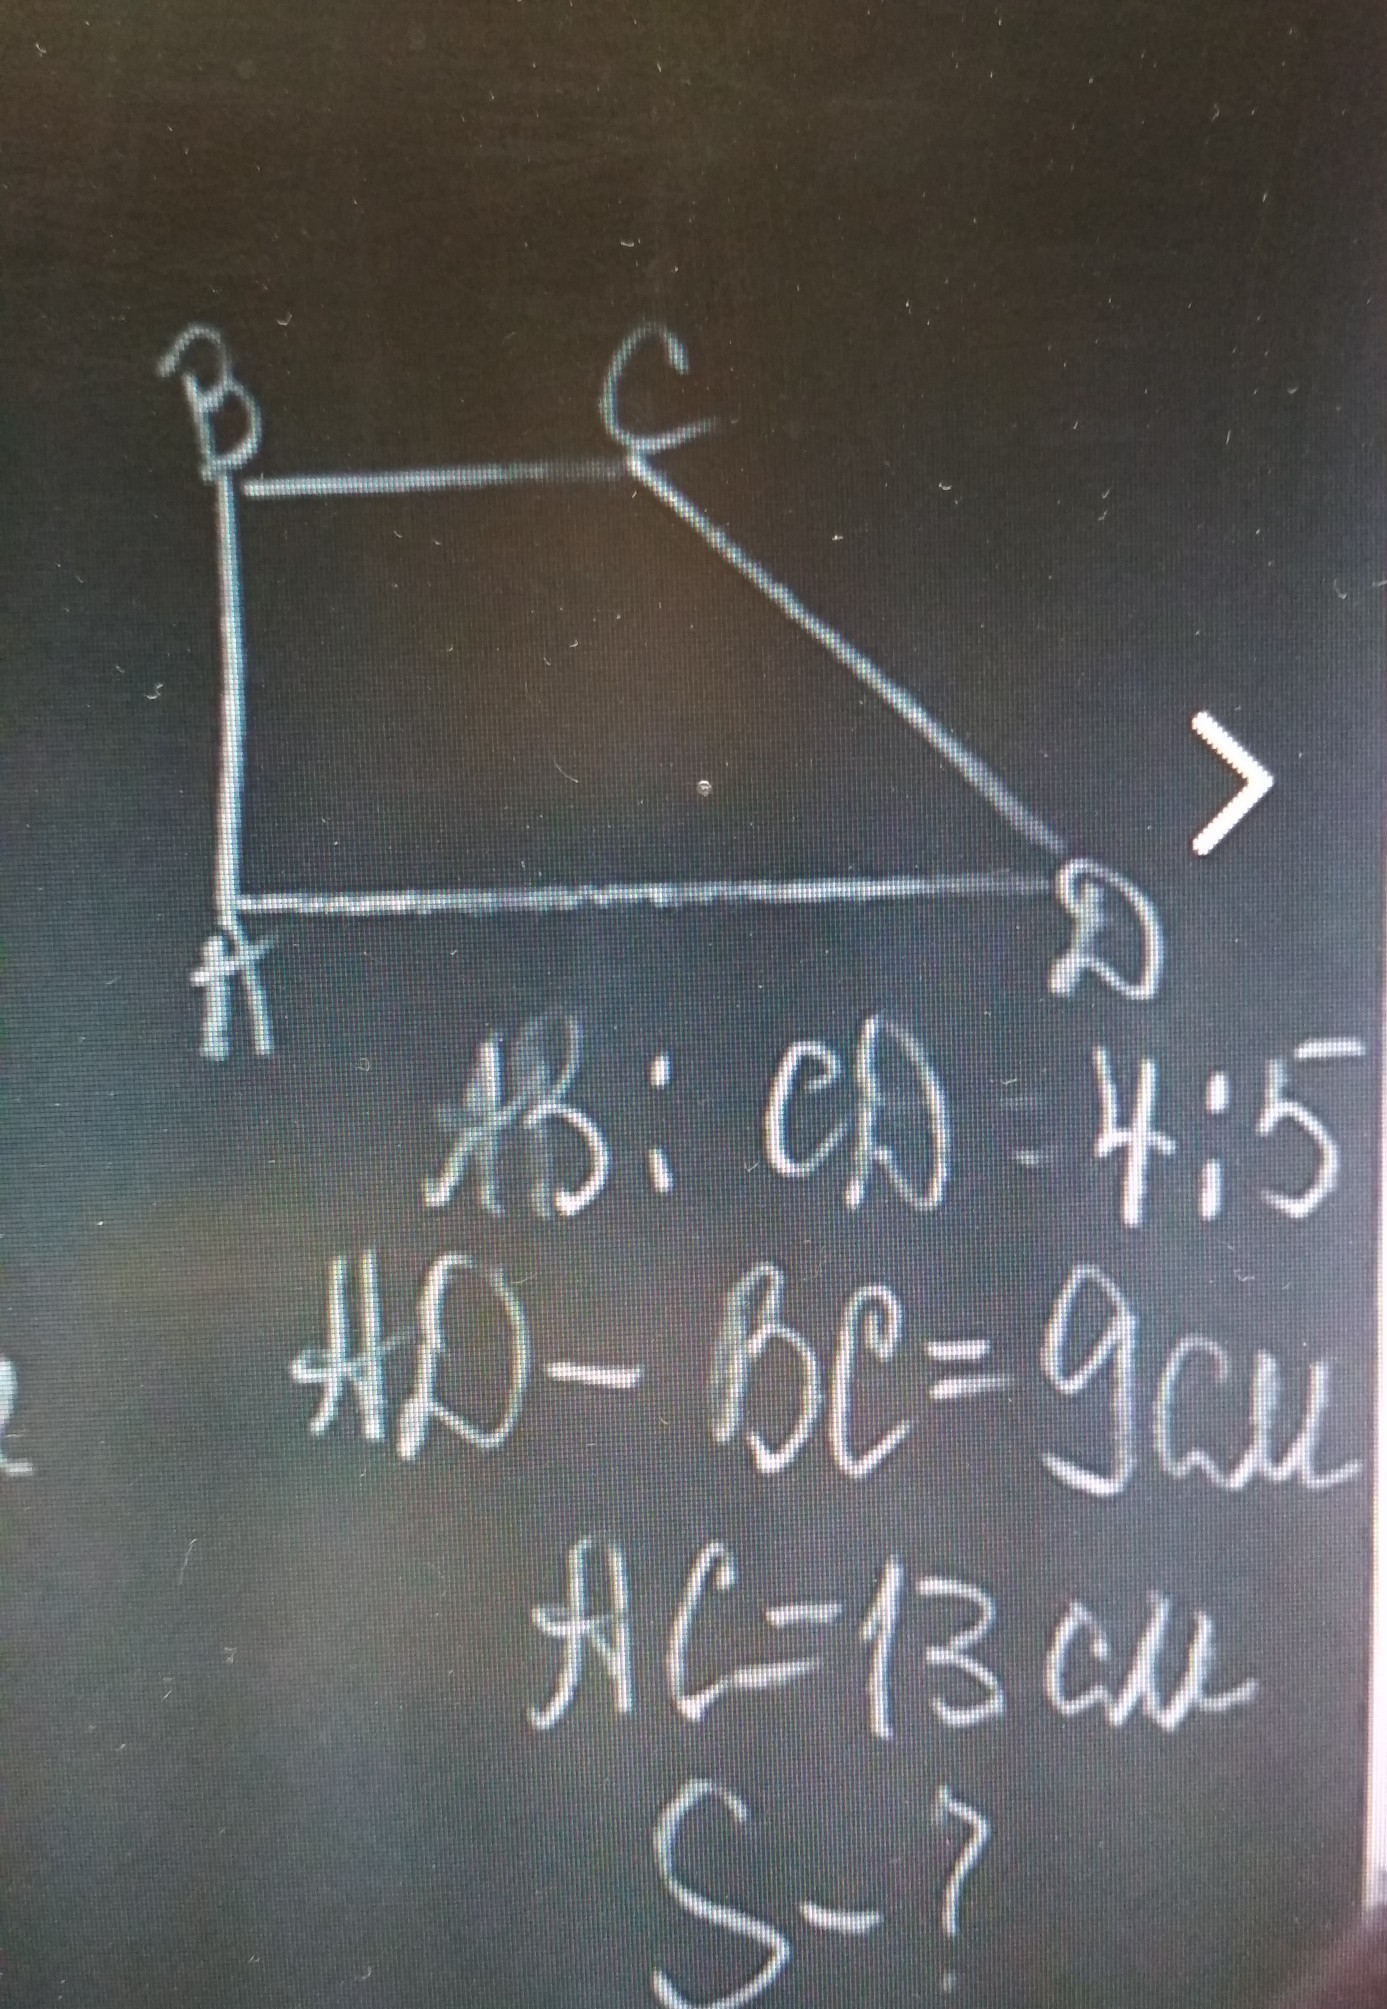 B C
A D
AB : CD = 4 : 5
AD - BC = 9 см
AC = 13 см
S - ?